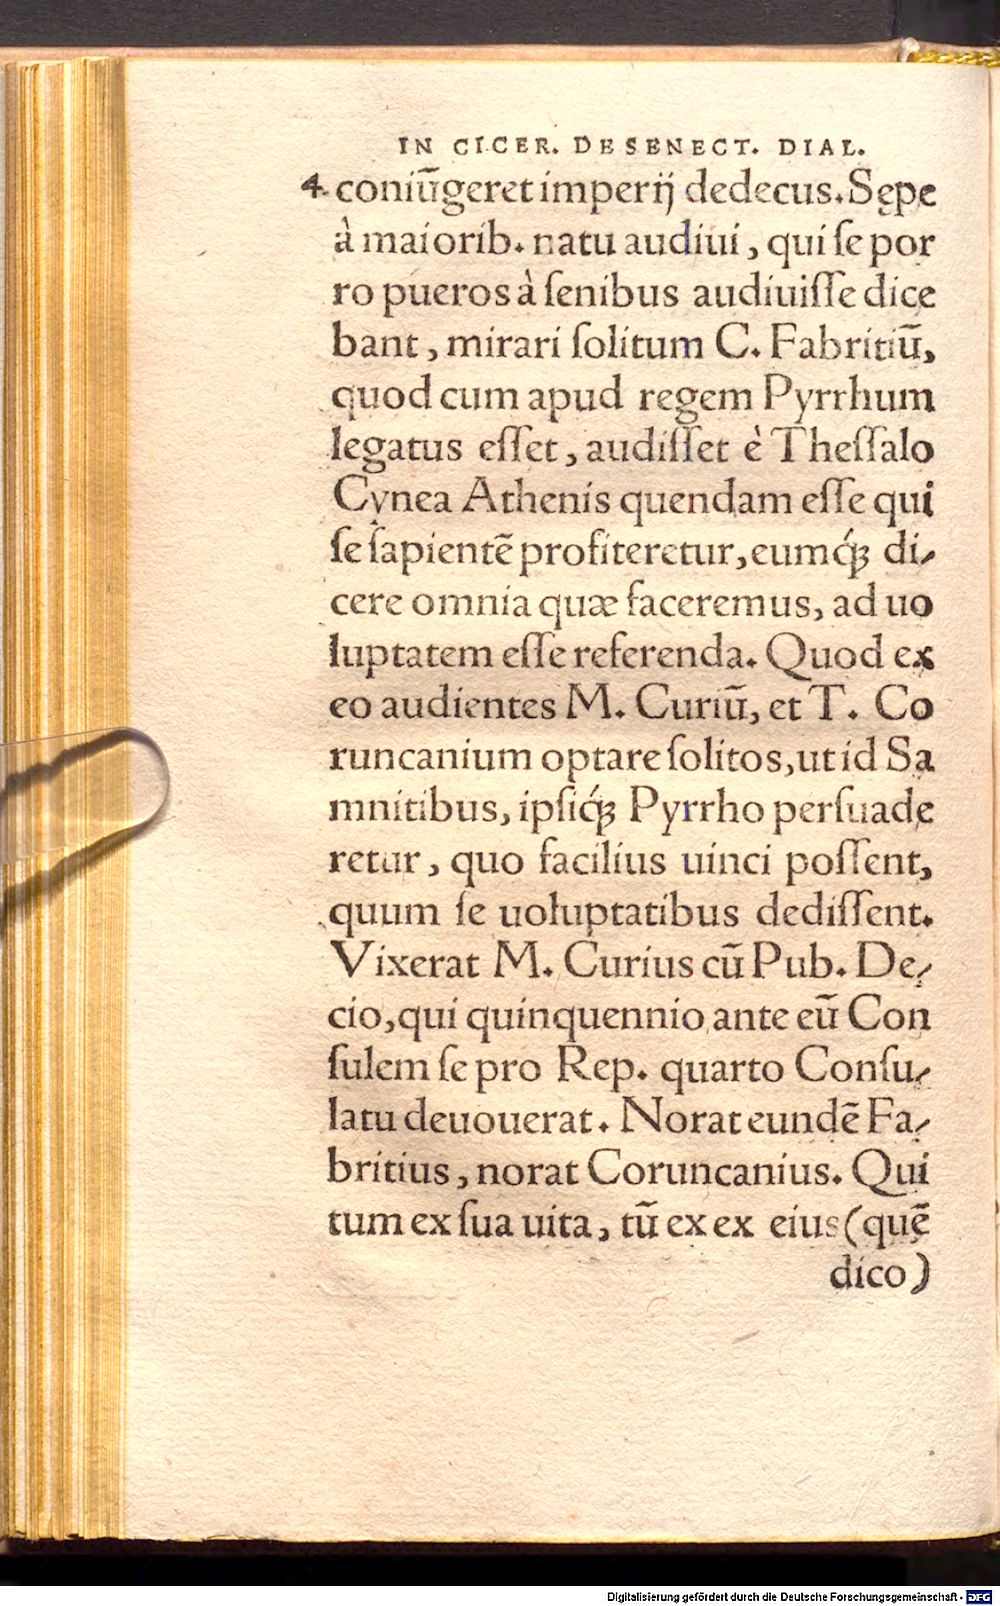 IN CICER. DE SENECT. DIAL.
4. coniūgeret imperij dedecus. Sępe
à maiorib. natu audiui, qui se por
ro pueros à senibus audiuisse dice
bant, mirari solitum C. Fabritiū,
quod cum apud regem Pyrrhum
legatus esset, audisset è Thessalo
Cynea Athenis quendam esse qui
se sapientē profiteretur, eumq́ꝫ di-
cere omnia quæ faceremus, ad uo
luptatem esse referenda. Quod ex
eo audientes M. Curiū, et T. Co
runcanium optare solitos, ut id Sa
mnitibus, ipsiq́ꝫ Pyrrho persuade
retur, quo facilius uinci possent,
quum se uoluptatibus dedissent.
Vixerat M. Curius cū Pub. De-
cio, qui quinquennio ante eū Con
sulem se pro Rep. quarto Consu-
latu deuouerat. Norat eundē Fa-
britius, norat Coruncanius. Qui
tum ex sua uita, tū ex ex eius (quē
dico)
Digitalisierung gefördert durch die Deutsche Forschungsgemeinschaft - DFG